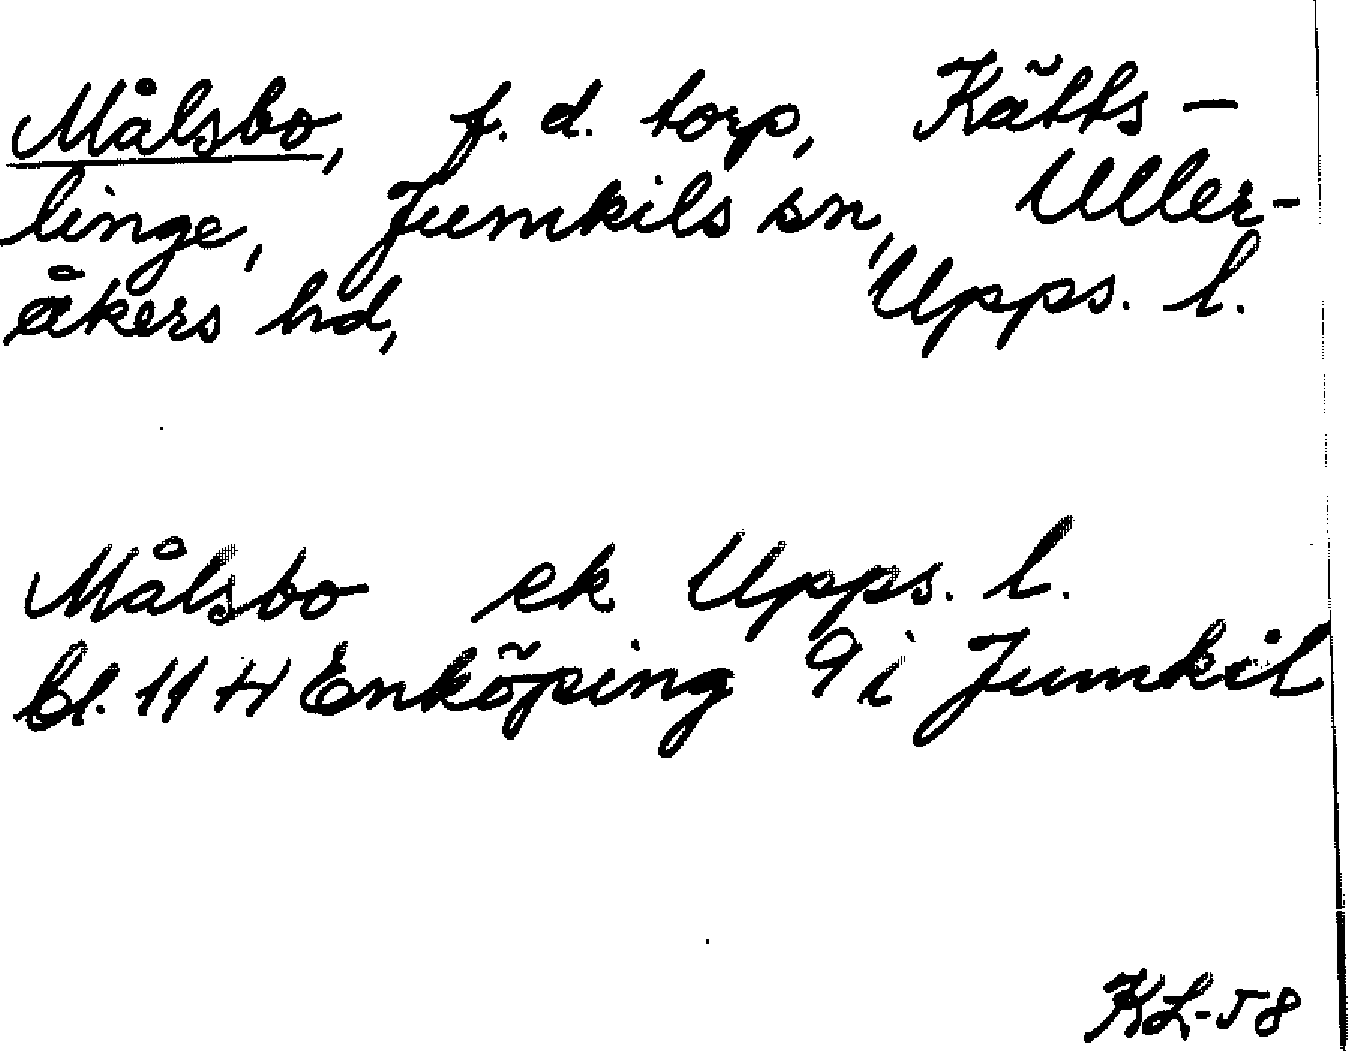 Målsbo, f. d. torp, Kätts-
linge, Jumkils sn, Uller-
åkers hd, Upps. l.
Målsbo ek Upps. l.
bl. 11 H Enköping 9 i Jumkil
KL-58